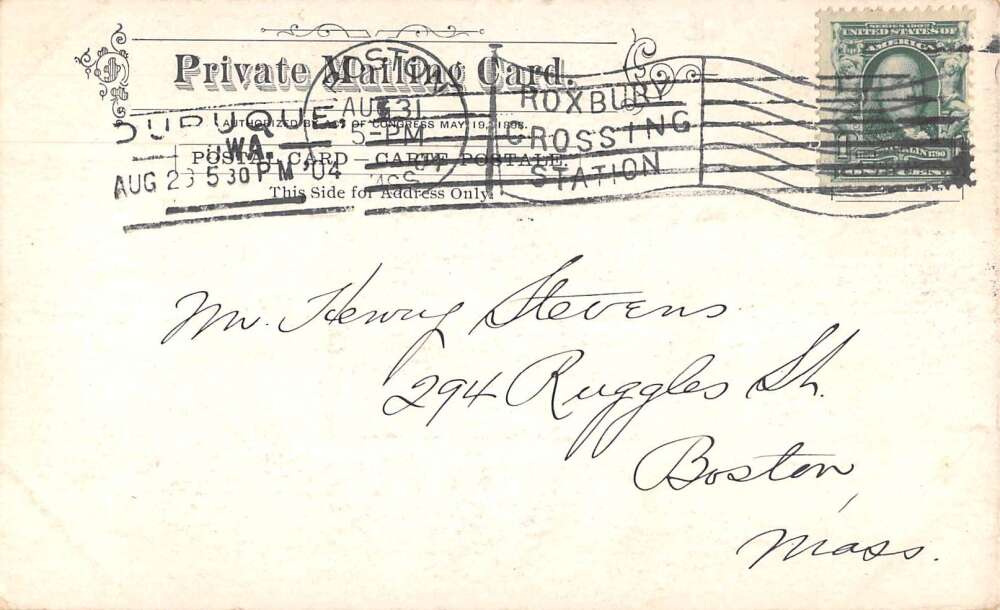 Private Mailing Card.
AUTHORIZED BY ACT OF CONGRESS MAY 19, 1898.
POSTAL CARD – CARTE POSTALE.
This Side for Address Only.
BOSTON
AUG 31
5-PM
MASS
ROXBURY
CROSSING
STATION
DUBUQUE
IWA.
AUG 29 5 30 PM '04
SERIES 1902
UNITED STATES OF
AMERICA
Mr. Henry Stevens
294 Ruggles St.
Boston,
Mass.